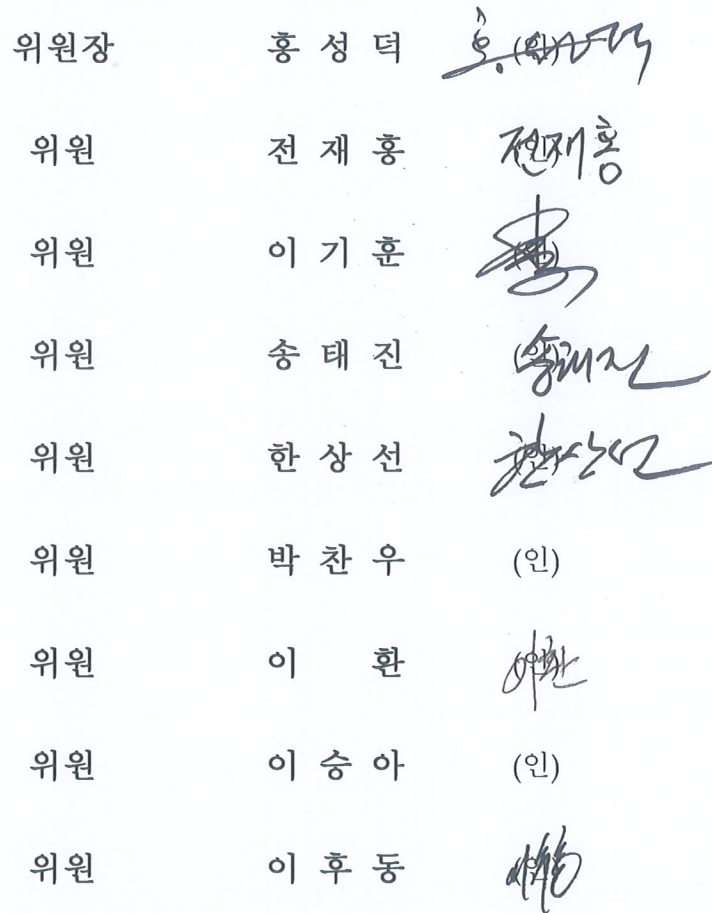 위원장 홍 성 덕 (인)
위원 전 재 홍 (인) 전재홍
위원 이 기 훈
위원 송 태 진 (인) 송태진
위원 한 상 선 (인) 한상선
위원 박 찬 우 (인)
위원 이 환 이환
위원 이 승 아 (인)
위원 이 후 동